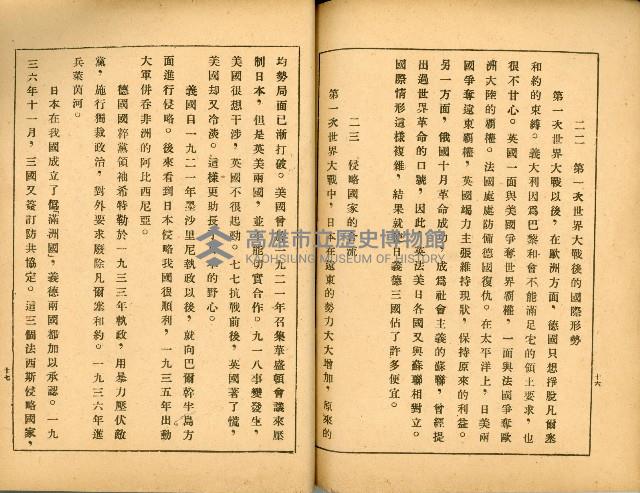 二二 第一次世界大戰後的國際形勢
第一次世界大戰以後，在歐洲方面，德國只想掙脫凡爾塞
和約的束縛。義大利因爲巴黎和會不能滿足它的領土要求，也
很不甘心。英國一面與美國爭奪世界霸權，一面與法國爭奪歐
洲大陸的霸權。法國處處防備德國復仇。在太平洋上，日美兩
國爭奪遠東霸權，英國竭力主張維持現狀，保持原來的利益。
另一方面，俄國十月革命成功，成爲社會主義的蘇聯，曾經提
出過世界革命的口號，因此，英法美日各國又與蘇聯相對立。
國際情形這樣複雜，結果就給日義德三國佔了許多便宜。
二三 侵略國家的合流
第一次世界大戰中，日本在遠東的勢力大大增加，原來的
十六
均勢局面已漸打破。美國曾於一九二一年召集華盛頓會議來壓
制日本，但是英美兩國，並不能切實合作。九一八事變發生，
美國很想干涉，英國不很起勁。七七抗戰前後，英國著了慌，
美國却又冷淡。這樣更助長了日本的野心。
義國自一九二一年墨沙里尼執政以後，就向巴爾幹半島方
面進行侵略。後來看到日本侵略我國很順利，一九三五年出動
大軍併吞非洲的阿比西尼亞。
德國國粹黨領袖希特勒於一九三三年執政，用暴力壓伏敵
黨，施行獨裁政治，對外要求廢除凡爾塞和約。一九三六年進
兵萊茵河。
日本在我國成立了「僞滿洲國」，義德兩國都加以承認。一九
三六年十一月，三國又簽訂防共協定。這三個法西斯侵略國家，
十七
高雄市立歷史博物館
KAOHSIUNG MUSEUM OF HISTORY